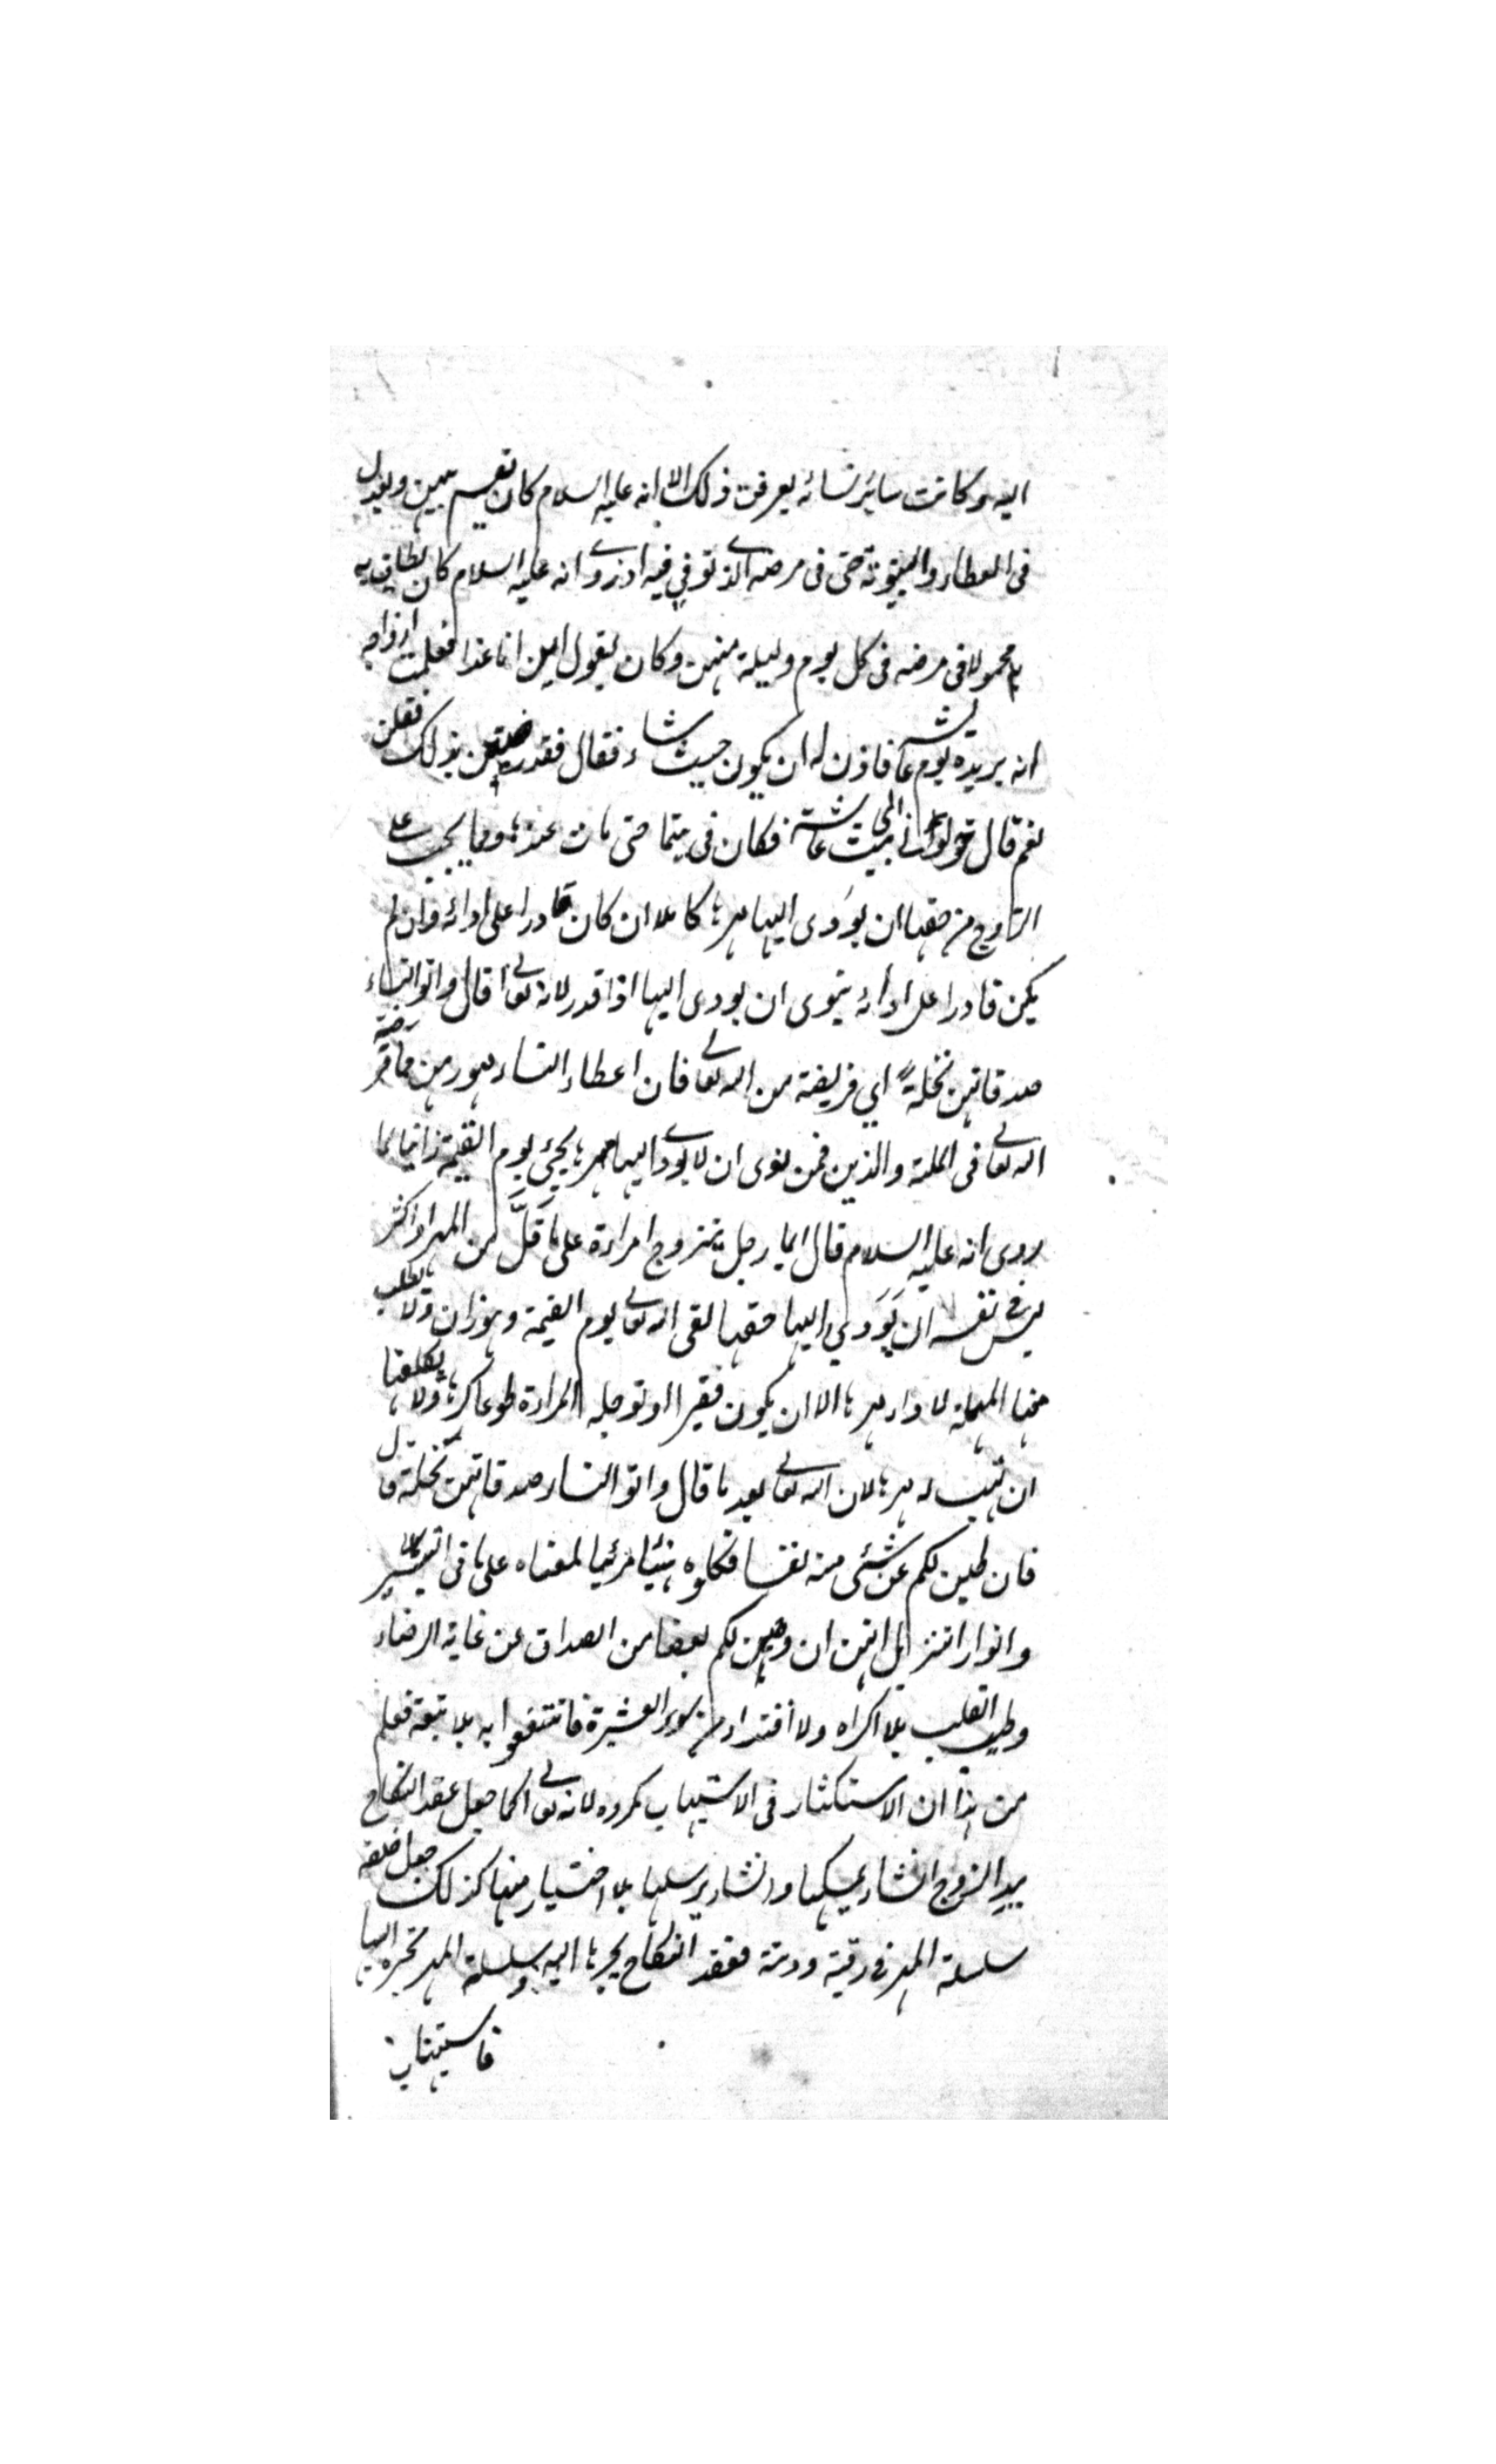 اليه وكانت سائر نسائه يعرفن ذلك الا انه عليه السلام كان يقسم بينهن ويعدل
فى العطاء والبيتوتة حتى فى مرضه الذے توفي فيه اذ روے انه عليه السلام كان يطاف به
محمولا فى مرضه فى كل يوم وليلة منهن وكان يقول اين انا غدا فعلمت ازواجه
انه يريد يوم عائشة فاذن له ان يكون حيث شاء فقال فقد رضيتن بذلك فقلن
نعم قال حولوانے الى بيت عائشة فكان فى بيتها حتى مات عندها ومما يجب على
الزوج من حقها ان يؤدى اليها مهرها كاملا ان كان قادرا على ادائه وان لم
يكن قادرا على ادائه ينوى ان يودى اليها اذا قدر لانه تعالى قال واتوا النساء
صدقاتهن نحلة اي فريضة من الله تعالى فان اعطاء النساء مهورهن مما فرضه
الله تعالى فى الملة والدين فمن نوى ان لا يودے اليها مهرها يجئ يوم القيمة زانيا لما
روى انه عليه السلام قال ايما رجل يتزوج امراءة على ما قل من المهر او اكثر
ليس فے نفسه ان يؤدي اليها حقها لقى الله تعالى يوم القيمة وهو زان ولا يطلب
منها المهلة لاداء مهرها الا ان يكون فقيرا او توجله المراءة طوعا كرها ولا يكلفها
ان تهب له مهرها لان الله تعالى بعد ما قال واتوا النساء صدقاتهن نحلة قال
فان طبن لكم عن شئ منه نفسا فكلوه هنيئا مرئيا لمعناه على ما فى التيسير
وانوار التنزيل انهن ان وهبن لكم بعضا من الصداق عن غاية الرضاء
وطيب القلب بلا اكراه ولا افتداء من سوء العشيرة فانتفعوا به بلا تبعة فعلم
من هذا ان الاستكثار فى الاستيهاب مكروه لانه تعالى كما جعل عقد النكاح
بيد الزوج انشاء يمسكها وانشاء يرسلها بلا اختيار منها كذلك جعل خلقه
سلسلة المهر فے رقبة وذمة فعقد النكاح يجرها اليه وسلسلة المهر تجره اليها
فاستيهاب